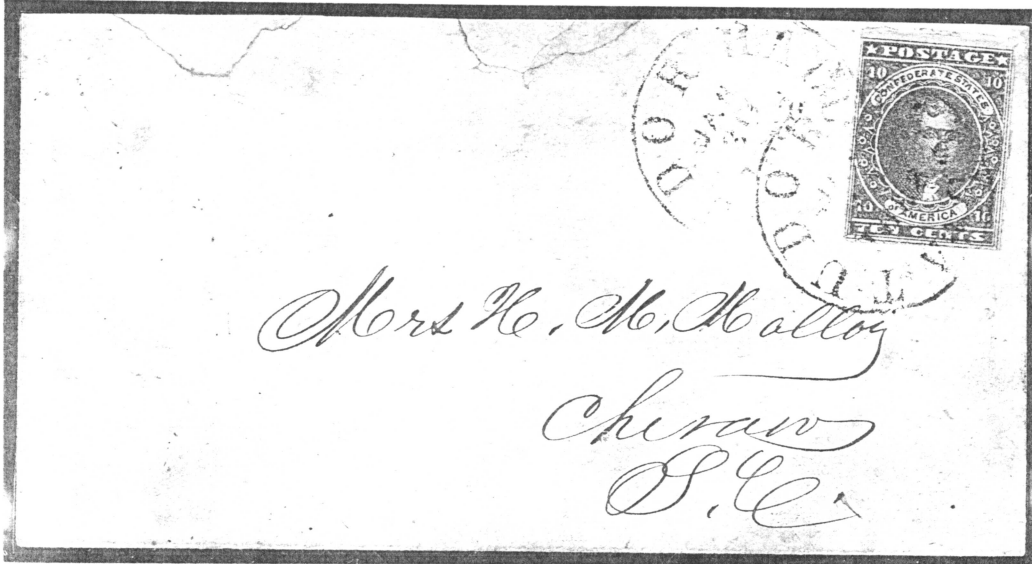 ★POSTAGE★
10 10
CONFEDERATE STATES
of AMERICA
10 10
TEN CENTS
DOR
JAN
TUDOR
Mrs H. M. Malloy
Cheraw
S. C.